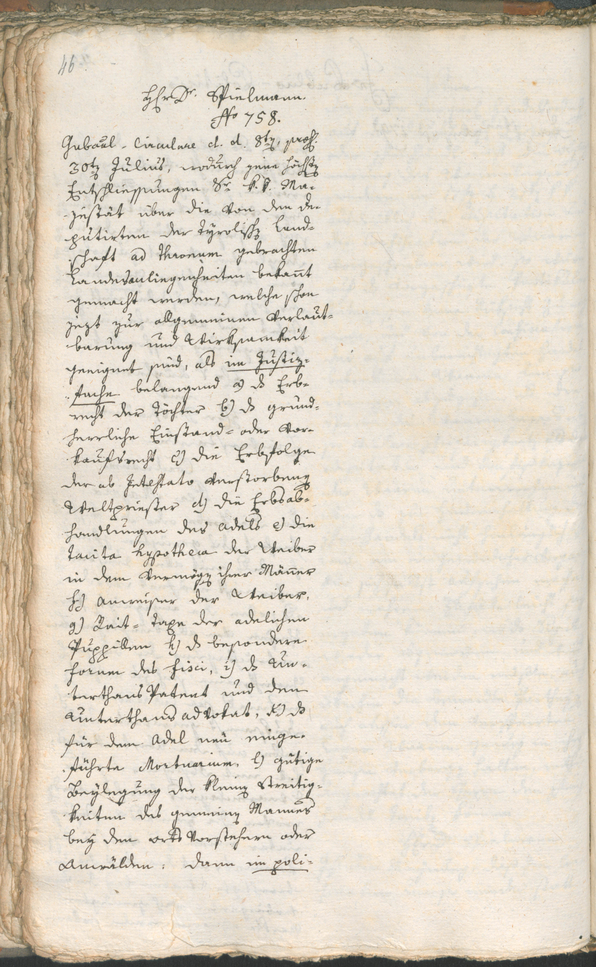 46.
H<sup>r</sup> D<sup>r</sup>. Spielmann
N<sup>o</sup> 758.
Gubernl. Circulare d. d. 8<sup>ten</sup>, prs.
30<sup>ten</sup> Julius, wodurch jene höchste
Entschliessungen S<sup>r</sup>. k. k. Ma-
jestät über die von den de-
putirten der Tyrolischen Land-
schaft ad Thronum gebrachten
Landesanliegenheiten bekannt
gemacht werden, welche schon
jezt zur allgemeinen Verlaut-
barung und Wirksamkeit
geeignet sind, als im Justiz-
fache belangend a) das Erb-
recht der Töchter b) das grund-
herrliche Einstand- oder Vor-
kaufsrecht c) die Erbfolge
der ab Intestato verstorbenen
Weltpriester d) die Erbsab-
handlungen des Adels e) die
tacita Hypotheca der Weiber
in dem Vermögen ihrer Männer
f) Anweiser der Weiber,
g) Rait-Taxe der adelichen
Puppillen h) das besondere
forum des fisci, i) das Un-
terthans Patent und den
Unterthans advokat, k) das
für den Adel neu einge-
führte Mortuarium, l) gütige
Beylegung der kleinen Streitig-
keiten des gemeinen Mannes
bey den orts Vorstehern oder
Anwälden: dann im poli-